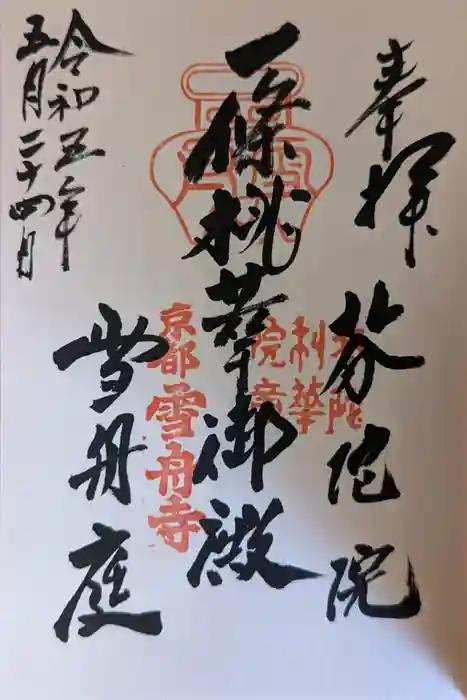 奉拝
芬陀院
一條桃華御殿
雪舟庭
令和五年
五月二十四日
京都
雪舟寺